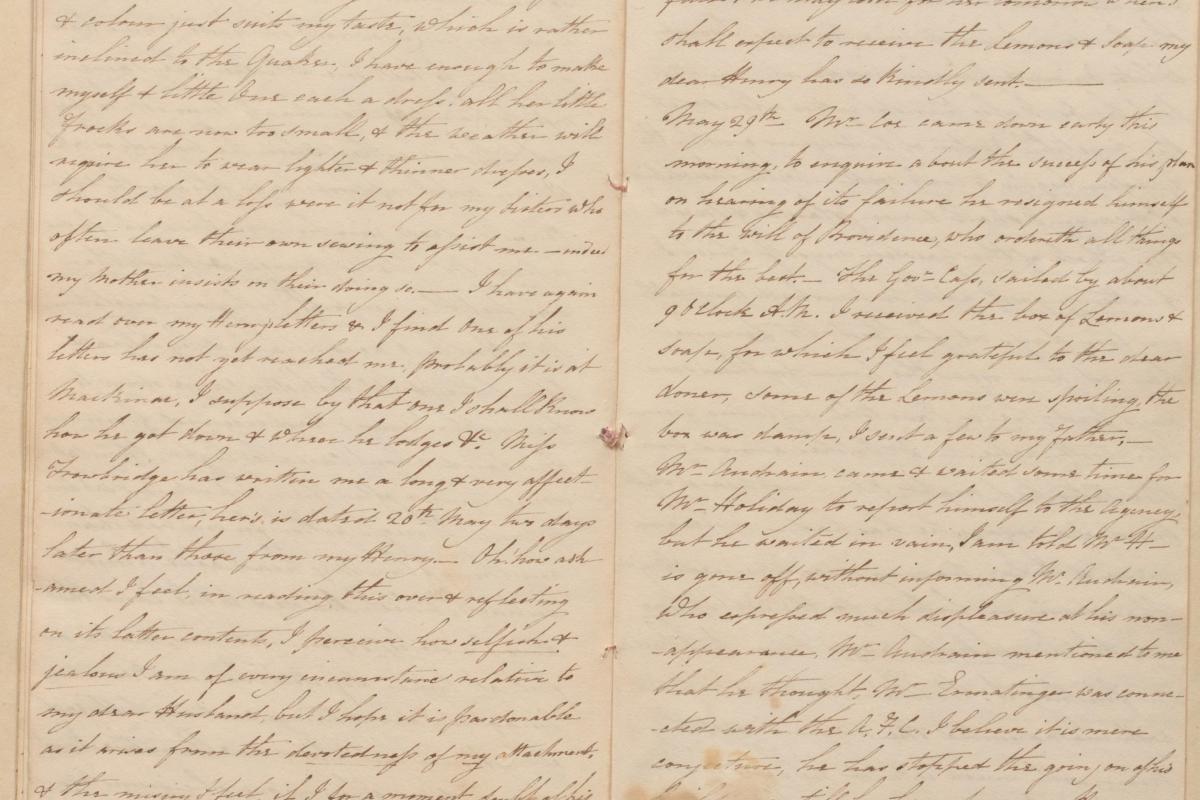 & colour just suits my taste, which is rather
inclined to the Quaker, I have enough to make
myself & little One each a dress. all her little
frocks are now too small, & the weather will
require her to wear lighter & thinner dresses, I
should be at a loss were it not for my sisters who
often leave their own sewing to assist me — indeed
my mother insists on their doing so. — I have again
read over my Henry's letters & I find One of his
letters has not yet reached me, probably it is at
Mackinac, I suppose by that one I shall know
how he got down & where he lodges &c. Miss
Trowbridge has written me a long & very affect
-ionate letter, her's, is dated 20th May two days
later than those from my Henry. — Oh! how ash
-amed I feel, in reading this over & reflecting
on its latter contents, I perceive how selfish &
jealous I am of every circumstance relative to
my dear Husband, but I hope it is pardonable
as it arises from the devotedness of my attachment,
& the misery I feel, if I for a moment doubt of his
shall expect to receive the Lemons & Soap my
dear Henry has so kindly sent. —
May 29th Mr Coe came down early this
morning, to enquire about the success of his plan
on hearing of its failure he resigned himself
to the will of Providence, who ordereth all things
for the best. — The Govr Cass, sailed by about
9 O'Clock A.M. I received the box of Lemons &
soap, for which I feel grateful to the dear
doner, some of the Lemons were spoiling, the
box was damp, I sent a few to my father. —
Mr Audrain came & waited some time for
Mr Holiday to report himself to the Agency,
but he waited in vain, I am told Mr H—
is gone off, without informing Mr Audrain,
Who expressed much displeasure at his non-
-appearance, Mr Audrain mentioned to me
that he thought, Mr Ermatinger was conne-
-cted with the A. F. C. I believe it is mere
conjecture, he has stopped the going on of his